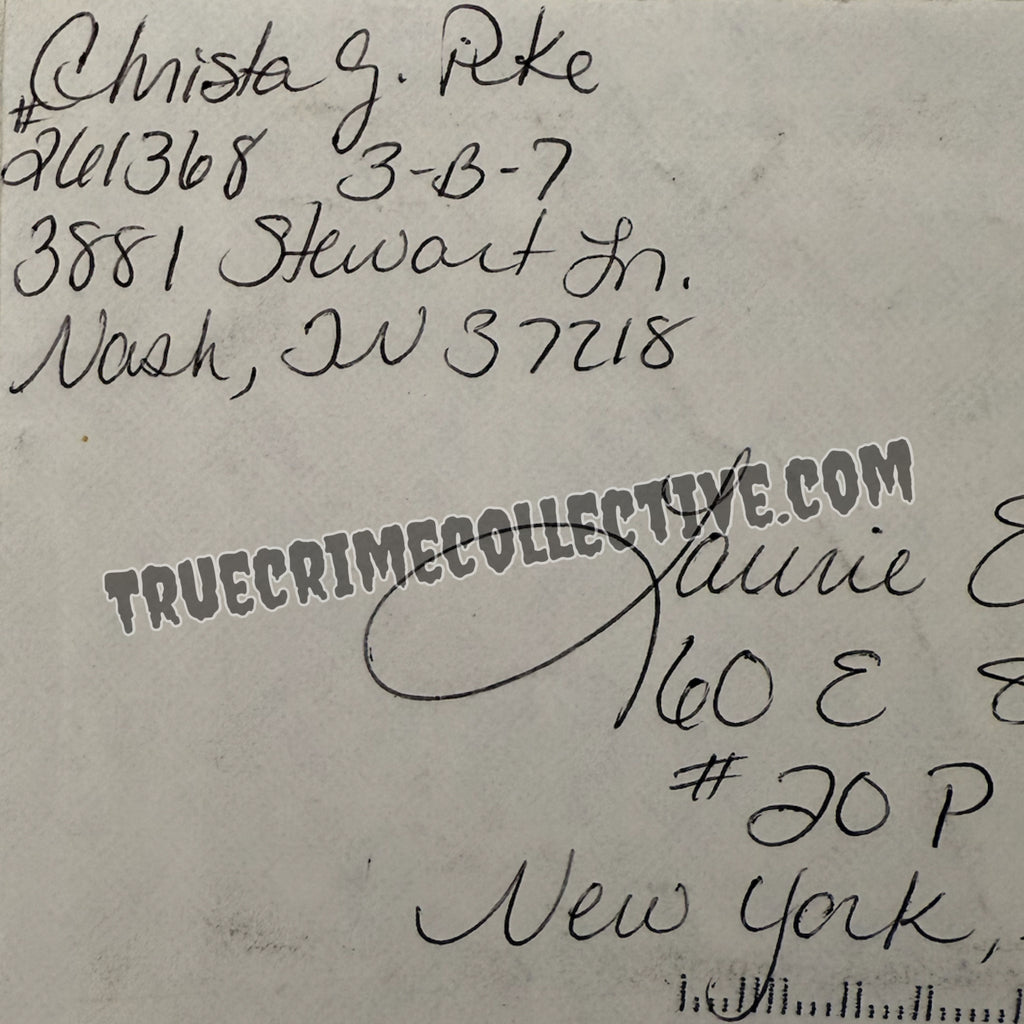 Christa G. Pike
#261368 3-B-7
3881 Stewart Ln.
Nash, TN 37218
TRUECRIMECOLLECTIVE.COM
Laurie E
60 E 8
#20P
New York,